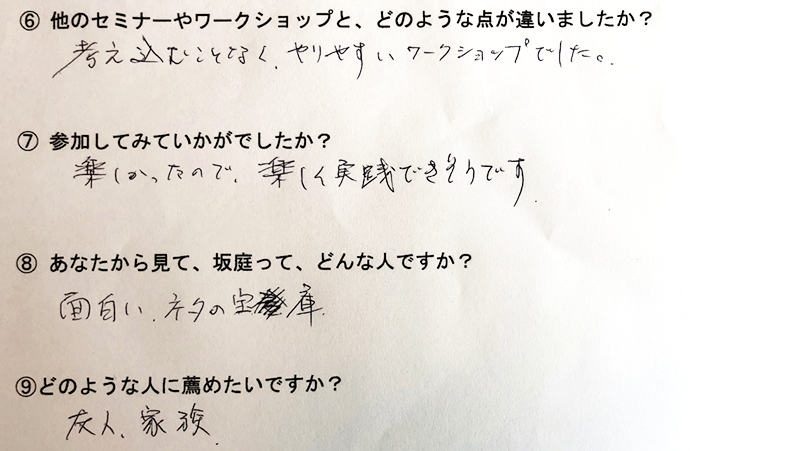 ⑥ 他のセミナーやワークショップと、どのような点が違いましたか？
考え込むことなく、やりやすいワークショップでした。
⑦ 参加してみていかがでしたか？
楽しかったので、楽しく実践できそうです.
⑧ あなたから見て、坂庭って、どんな人ですか？
面白い、ネタの宝庫.
⑨どのような人に薦めたいですか？
友人、家族.